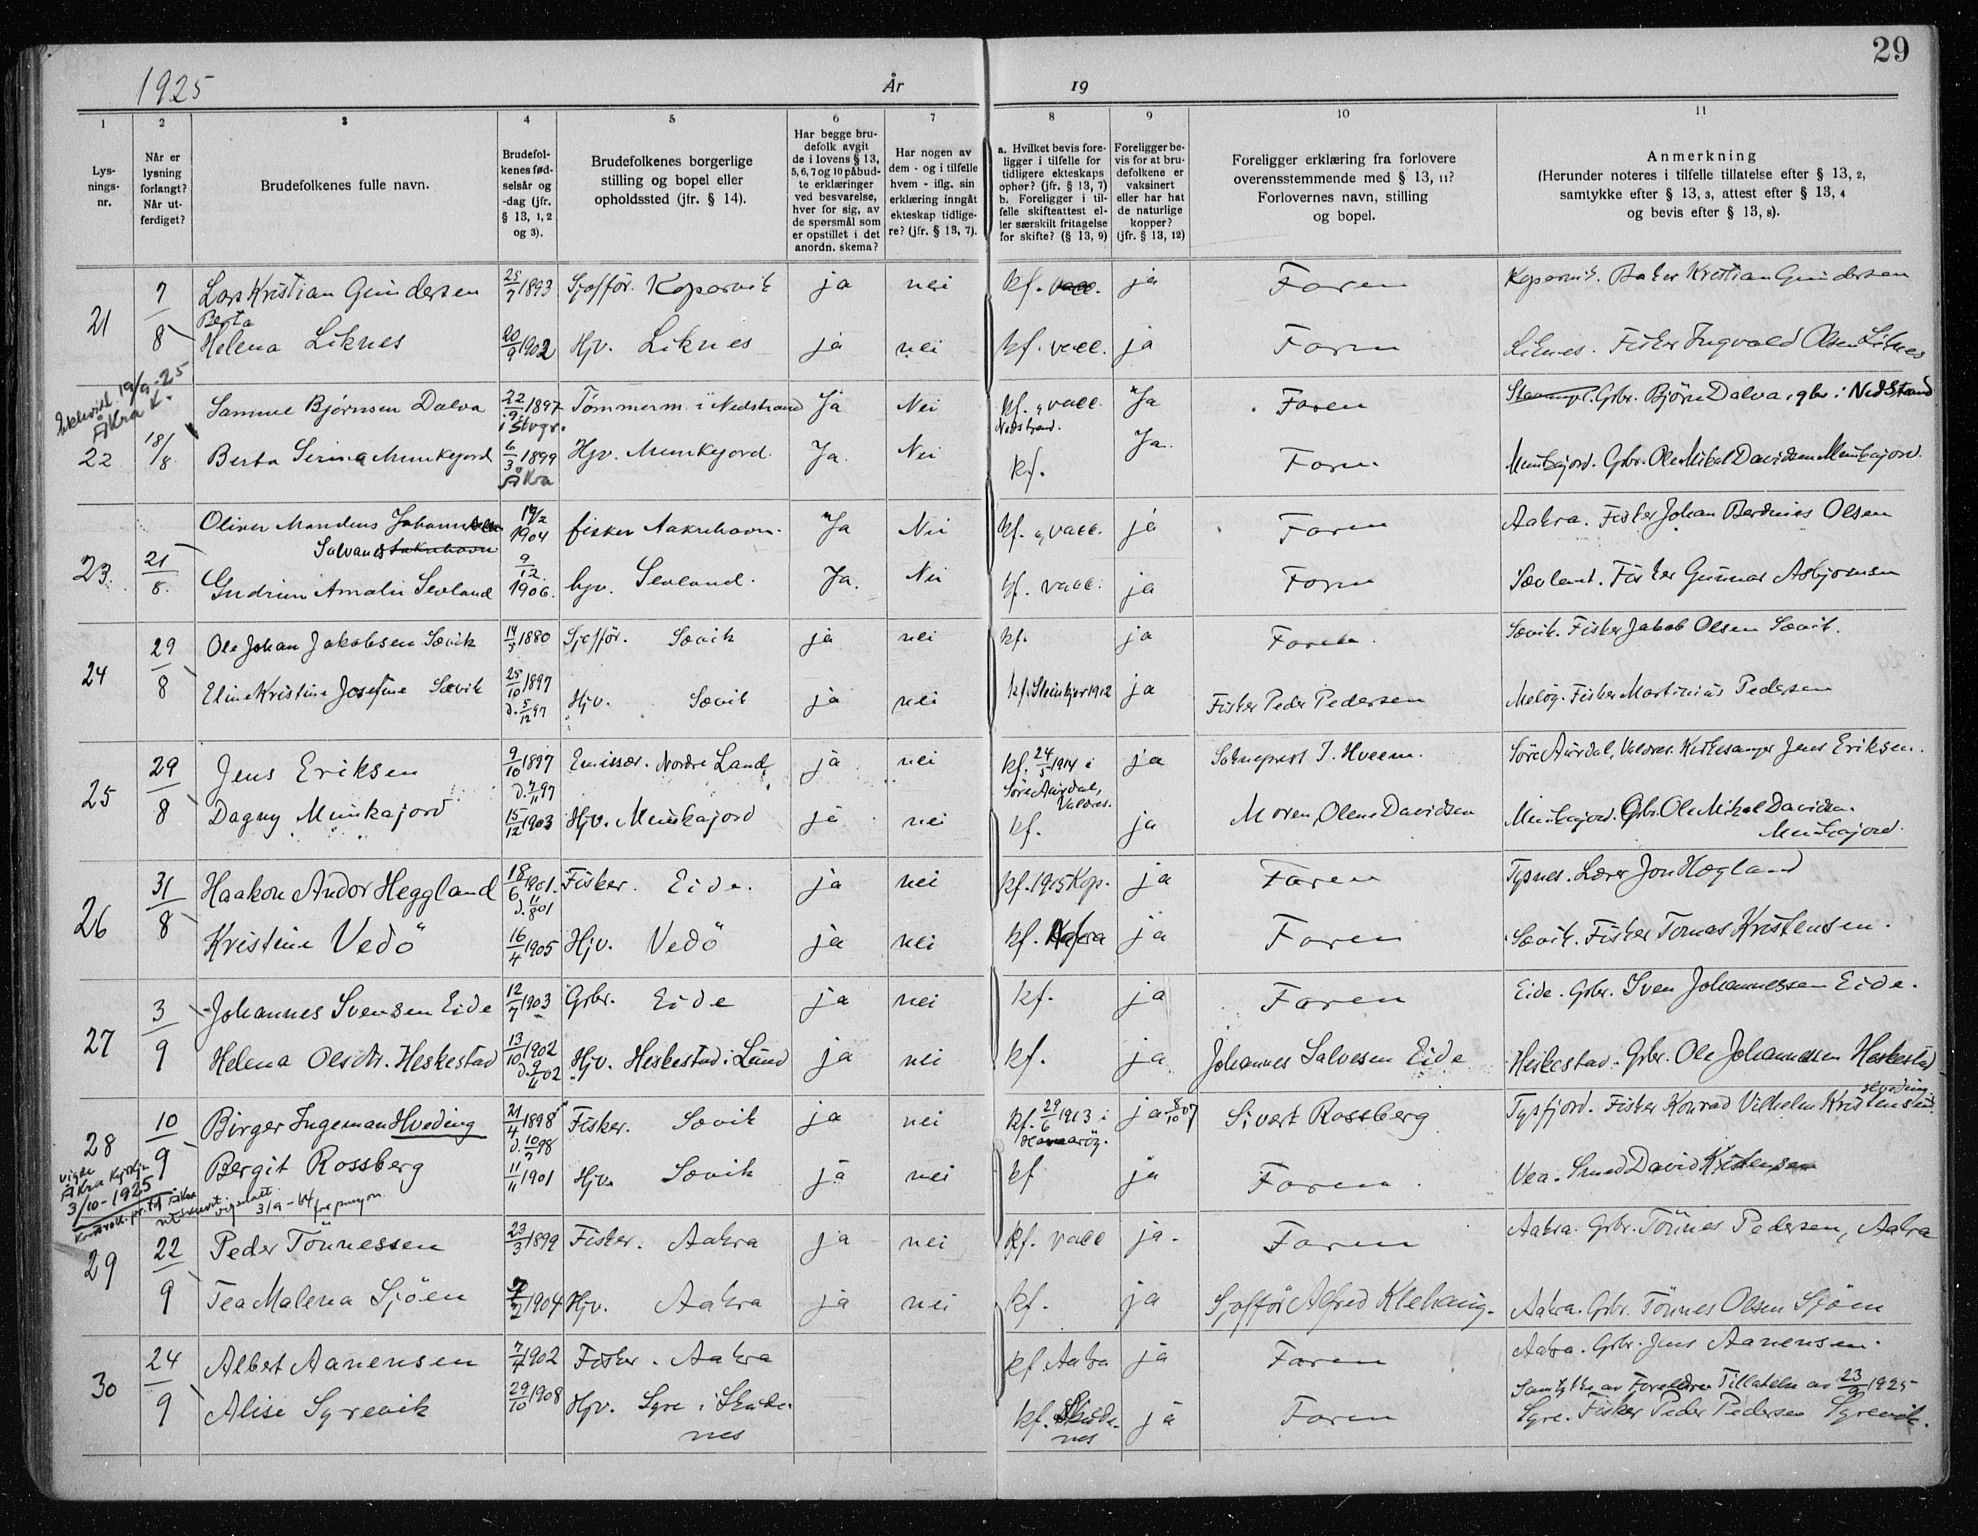 29
1925 År 19
1 2 3 4 5 6 7 8 9 10 11
Lys-
nings-
nr.
Når er
lysning
forlangt?
Når ut-
ferdiget?
Brudefolkenes fulle navn.
Brudefol-
kenes fød-
selsår og
-dag (jfr.
§ 13, 1, 2
og 3).
Brudefolkenes borgerlige
stilling og bopel eller
opholdssted (jfr. § 14).
Har begge bru-
defolk avgit
de i lovens § 13,
5, 6, 7 og 10 påbud-
te erklæringer
ved besvarelse,
hver for sig, av
de spørsmål som
er opstillet i det
anordn. skema?
Har nogen av
dem - og i tilfelle
hvem - iflg. sin
erklæring inngåt
ekteskap tidlige-
re? (jfr. § 13, 7).
a. Hvilket bevis fore-
ligger i tilfelle for
tidligere ekteskaps
ophør? (jfr. § 13, 7)
b. Foreligger i til-
felle skifteattest el-
ler særskilt fritagelse
for skifte? (§ 13, 9)
Foreligger be-
vis for at bru-
defolkene er
vaksinert
eller har hat
de naturlige
kopper?
(jfr. § 13, 12)
Foreligger erklæring fra forlovere
overensstemmende med § 13, 11?
Forlovernes navn, stilling
og bopel.
Anmerkning
(Herunder noteres i tilfelle tillatelse efter § 13, 2,
samtykke efter § 13, 3, attest efter § 13, 4
og bevis efter § 13, 8).
21 7/8 Lars Kristian Gundersen 25/7 1893 Sjofför. Kopervik ja nei kf. vacc. ja Faren Kopervik. Baker Kristian Gundersen
Berta
Helena Liknes 20/9 1902 Hjv. Liknes ja nei kf. vacc. ja Faren Liknes. Fisker Ingvald Olsen Liknes
19/9-25
Åkra K.
22 18/8 Samuel Bjørnsen Dalva 22/9 1897 i Stvgr. Tömmerm. i Nedstrand Ja Nei kf. vacc. Nedstrand. Ja Faren Grbr. Bjørn Dalva, gbr. i Nedstrand
Berta Serina Munkejord 6/3 1899 Åkra Hjv. Munkejord. Ja. Nei kf. Ja. Faren. Munkajord. Grbr. Ole Mikal Davidsen Munkajord.
23. 21/8. Oliver Mandius Johannessen 14/2 1904 fisker Aakrehavn. Ja Nei kf. vacc. ja Faren Aakra. Fisker Johan Berdinius Olsen
Salvanes Aakrehavn
Gudrun Amalie Sevland 9/12. 1906. hjv. Sevland. Ja. Nei kf. vacc. ja Faren Sævland. Fisker Gunnar Asbjørnsen
24 29/8 Ole Johan Jakobsen Sævik 14/3 1880 Sjofför. Sævik ja nei kf. ja Faren. Sævik. Fisker Jakob Olsen Sævik.
Eline Kristine Josefine Sævik 25/10 1897 d. 5/12 97 Hjv. Sævik ja nei kf. Steinkjer 1912 ja Fisker Peder Pedersen Meløy. Fisker Martinius Pedersen
25 29/8 Jens Eriksen 9/10 1897 d. 7/11 97 Emissær. Nordre Land ja nei kf. 24/5 1914 i Søre Aurdal, Valdres. ja Sokneprest J. Hveem. Søre Aurdal, Valdres. Kirkesanger Jens Eriksen.
Dagny Munkajord 15/12 1903 Hjv. Munkajord ja nei kf. ja Moren, Olene Davidsen Munkajord. Grbr. Ole Mikal Davidsen
Munkajord.
26 31/8 Haakon Andor Heggland 18/6 1901. d. 11/8 01 Fisker. Eide. ja nei kf. 1915 Kop. ja Faren Tysnes. Lærer Jon Hægland
Kristine Vedö 16/4 1905 Hjv. Vedö ja nei kf. Aakra ja Faren Sævik. Fisker Tomas Kristensen.
27 3/9 Johannes Svensen Eide 12/7 1903 Grbr. Eide ja nei kf. ja Faren Eide. Grbr. Sven Johannessen Eide.
Helena Olsdtr. Heskestad 13/10 1902 d. 9/11 02 Hjv. Heskestad i Lund ja nei kf. ja Johannes Salvesen Eide Heskestad. Grbr. Ole Johannessen Heskestad
Hveding
28 10/9 Birger Ingeman Hveding 21/4 1898 d. 10/7 98 Fisker. Sævik ja nei kf. 29/6 1913 i Hamarøy. ja 8/10 07 Sivert Rossberg Tysfjord. Fisker Konrad Vilhelm Kristensen
Bergit Rossberg 11/11 1901 Hjv. Sævik ja nei kf ja Faren. Vea. Smed David Kristensen
Vigde
Åkra Kyrkja
3/10-1925
29 22/9 Peder Tönnessen 23/3 1899 Fisker. Aakra ja nei kf. vacc ja. Faren Aakra. Grbr. Tönnes Pedersen, Aakra
Tea Malena Sjöen 7/2 1904 Hjv. Aakra ja nei kf. ja Sjofför Alfred Klehaug. Aakra. Grbr. Tönnes Olsen Sjöen
30 24/9 Albert Aanensen 7/4 1902 Fisker. Aakra kf. Aakra ja Faren Aakra. Grbr. Jens Aanensen.
Samtykke av Foreldre. Tillatelse av 23/9 1925
Alise Syrevik 29/10 1908 Hjv. Syre i Skude- kf. Skude- ja Faren Syre. Fisker Peder Pedersen Syrevik.
nes nes